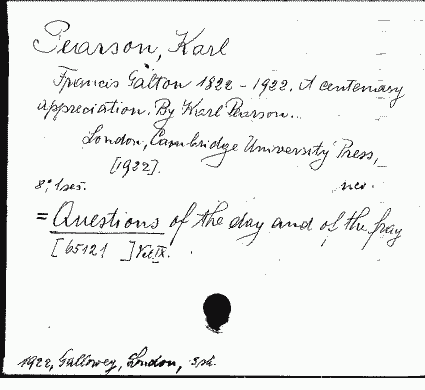 Pearson, Karl
Francis Galton 1822 - 1922. A centenary
appreciation. By Karl Pearson...
London, Cambridge University Press,
[1922].
8°. 1 sеš.
= Questions of the day and of the fray
[65121 ] Vol. IX.
1922, Galloway, London,